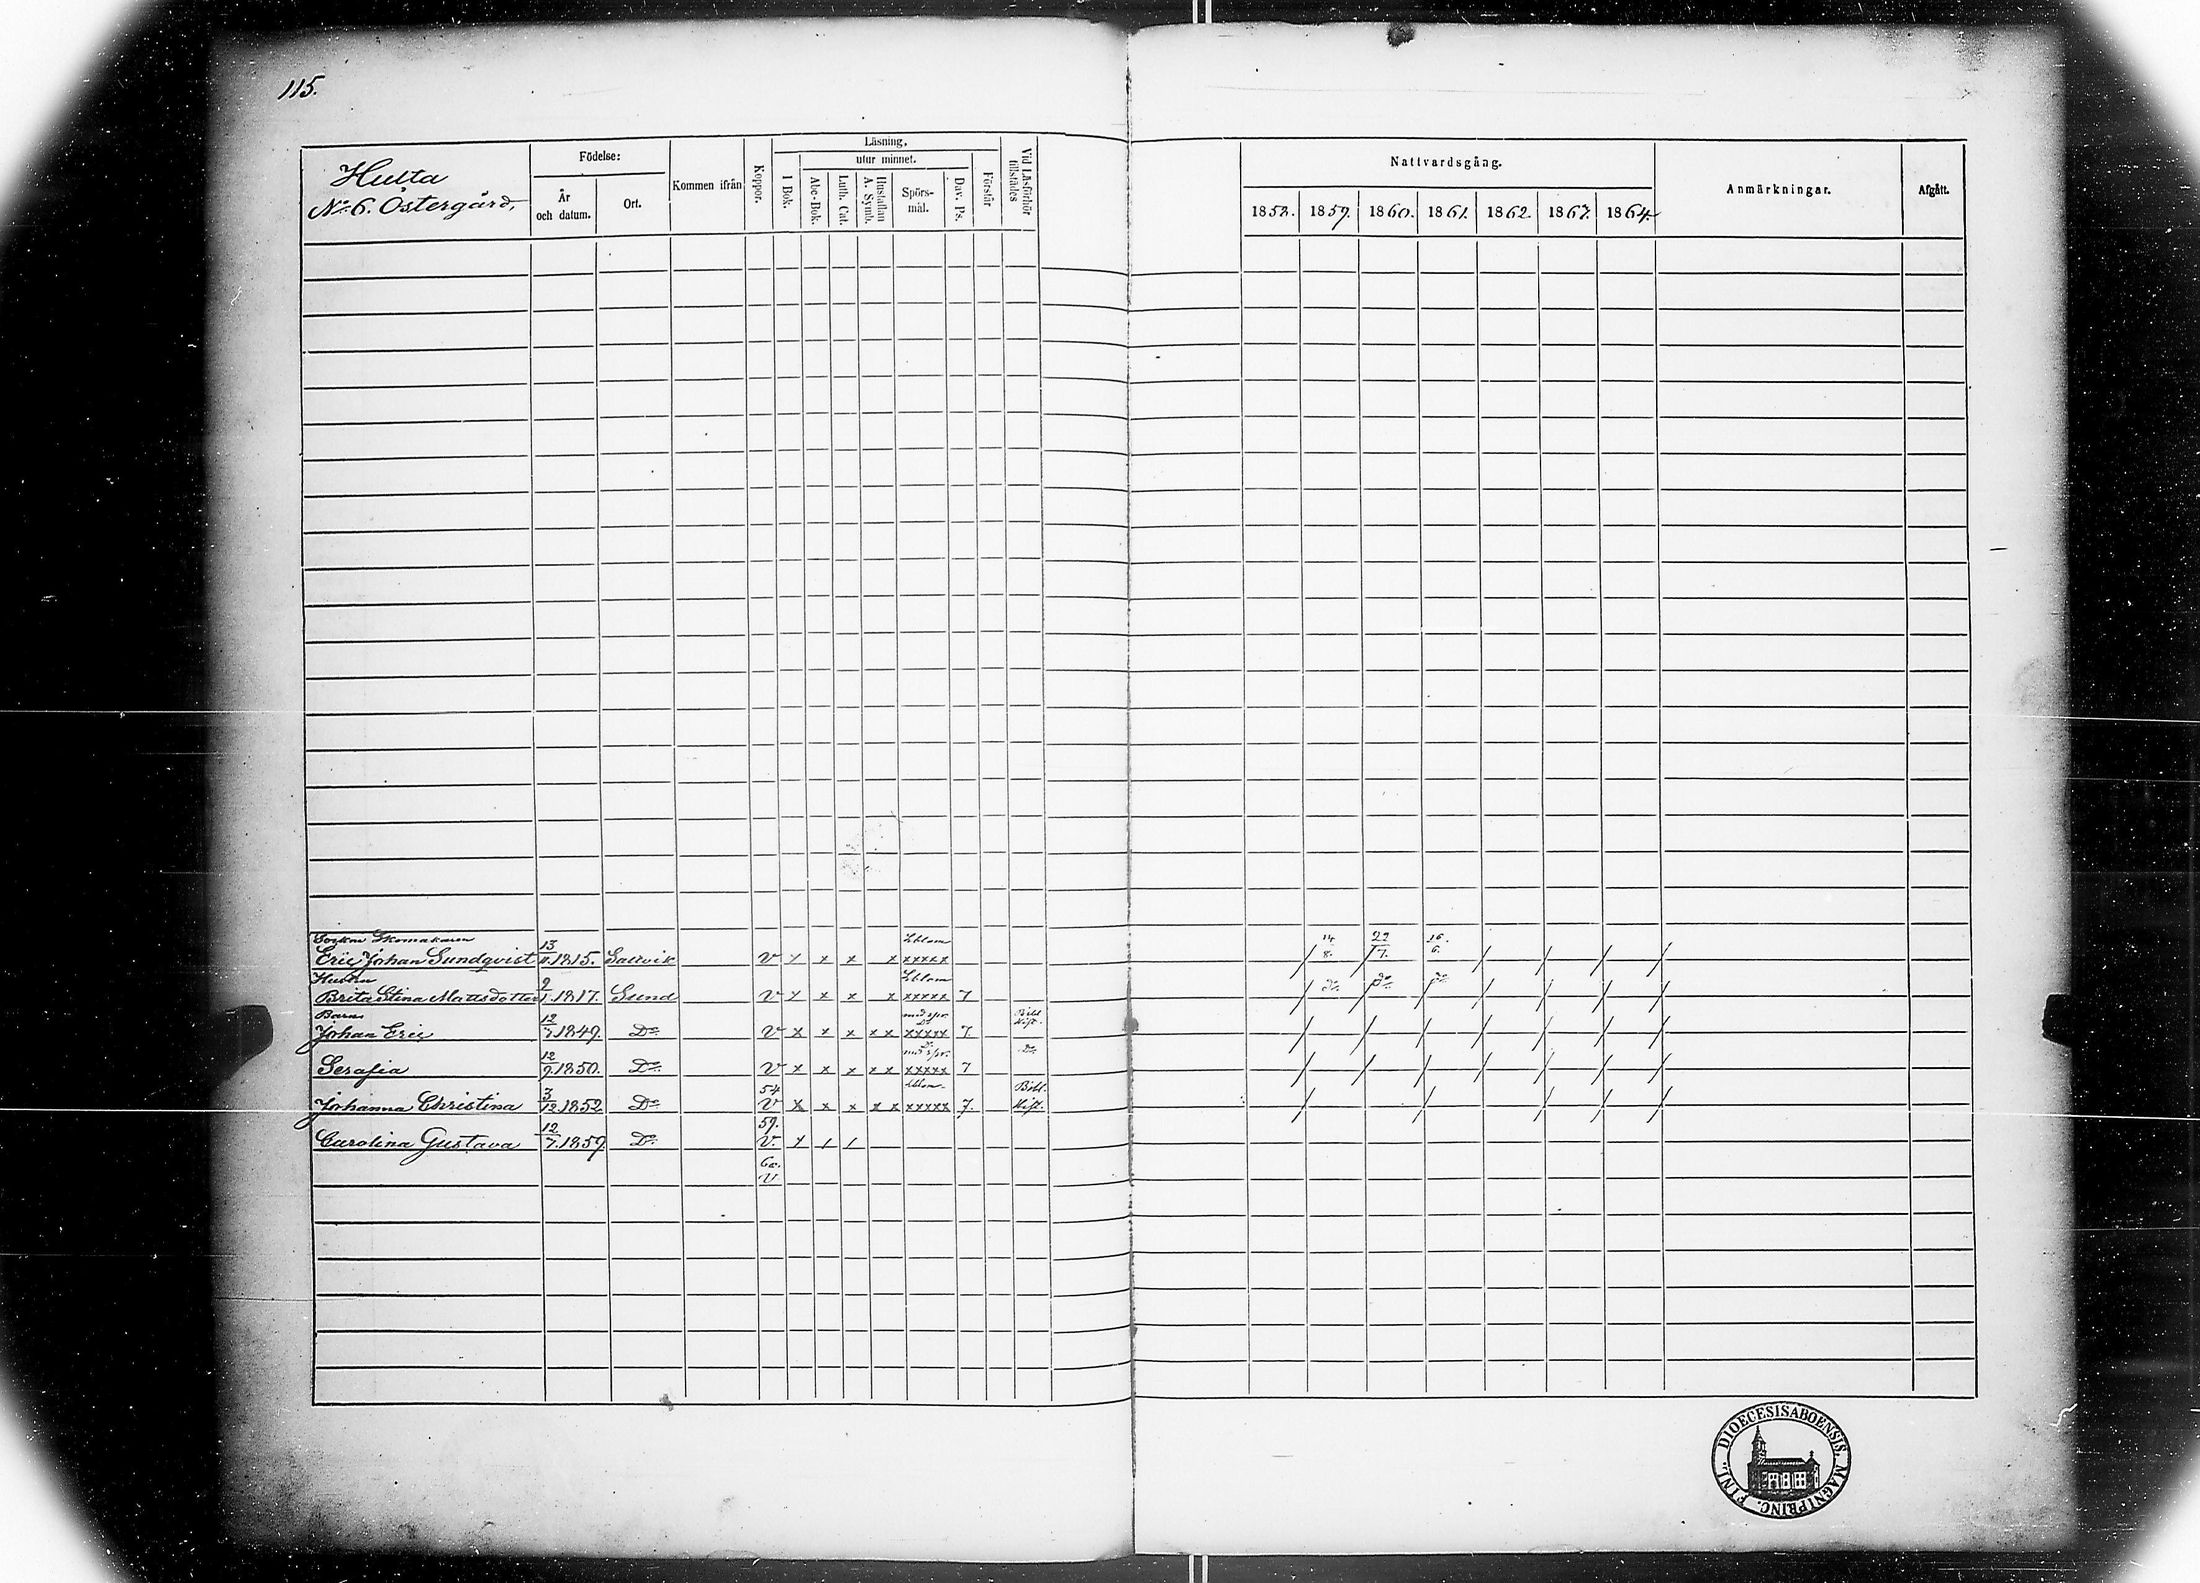 115.
Hulta
No. 6. Östergård.
Födelse:
År och datum.
Ort.
Kommen ifrån
Koppor.
Läsning.
utur minnet.
I Bok.
Abc-Bok.
Luth. Cat.
Hustaflan A. Symb.
Spörs-mål.
Dav. Ps.
Förstår
Vid Läsförhör tillstädes
Nattvardsgång.
1858. 1859. 1860. 1861. 1862. 1863. 1864.
Anmärkningar.
Afgått.
Sockne Skomakaren
Eric Johan Sundqvist 13/11 1815. Saltvik V x x x x xxxxx 14/8. 22/7. 16/6.
Hustru
Brita Stina Mattsdotter 9/1 1817. Sund V x x x x xxxxx 7 Do Do Do
Barn
Johan Eric 12/7 1849. Do V x x x x x xxxxx 7. Bibl. Hist.
Serafia 12/9 1850. Do V x x x x x xxxxx 7 Do
Johanna Christina 3/12 1852 Do 54 V x x x x x xxxxx 7. Bibl. Hist.
Carolina Gustava 12/7. 1859 Do 59. V. x / /
60. V
DIOECESIS ABOENSIS. MAGNI PRINC. FINL.